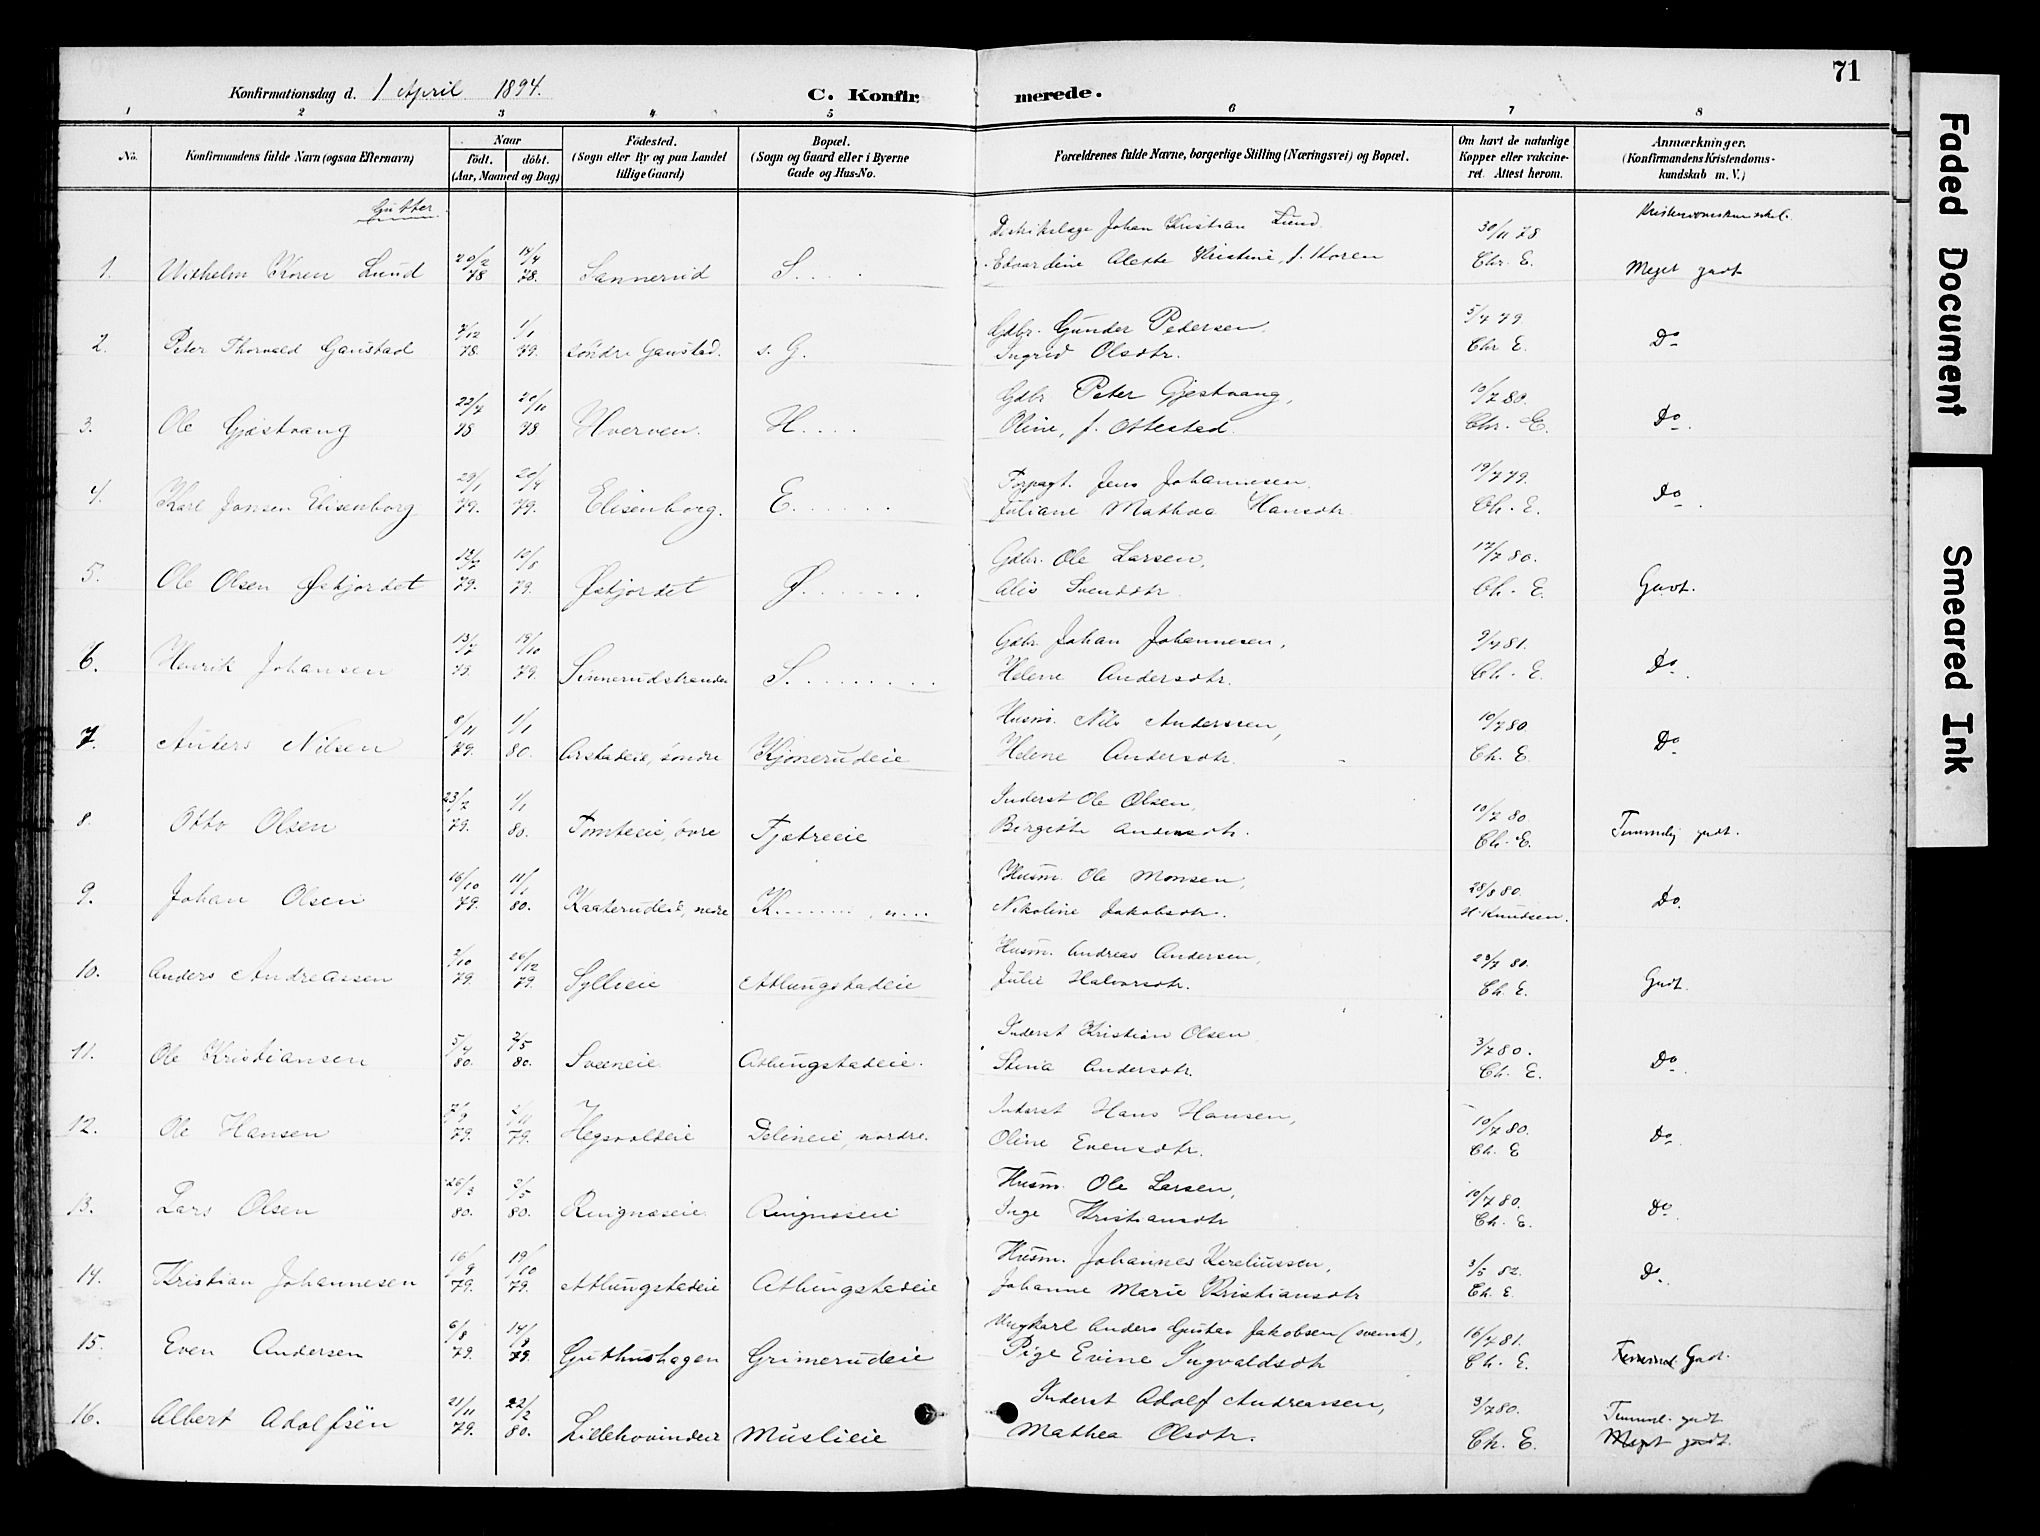 71
Konfirmationsdag d. 1 April 1894.
C. Konfir merede.
1 2 3 4 5 6 7 8
No.
Konfirmandens fulde Navn (ogsaa Efternavn)
Naar
födt. döbt.
(Aar, Maaned og Dag)
Födested.
(Sogn eller By og paa Landet
tillige Gaard)
Bopæl.
(Sogn og Gaard eller i Byerne
Gade og Hus-No.
Forældrenes fulde Navne, borgerlige Stilling (Næringsvei) og Bopæl.
Om havt de naturlige
Kopper eller vakcine-
ret. Attest herom.
Anmærkninger.
(Konfirmandens Kristendoms-
kundskab m. V.)
Gutter.
Distriktslæge Johan Kristian Lund 30/11 78
1. Vilhelm Koren Lund 20/2 78 14/4 78. Sannerud S.... Edvardine Alette Kristine, f. Koren Chr. E. Meget godt
Gdbr. Gunder Pedersen, 5/7 79.
2. Peter Thorvald Gaustad 7/12 78. 1/1 79. söndre Gaustad. s. G. Ingrid Olsdtr. Chr E. Do
Gdbr. Peter Gjestvang, 10/7 80.
3. Ole Gjestvang 23/7 78 20/10 78. Hverven. H.... Oline, f. Ottestad. Chr. E. Do.
Forpagt. Jens Johannesen, 19/7 79.
4. Karl Jensen Elisenborg 29/1 79. 20/4 79. Elisenborg. E...... Juliane Mathea Hansdtr. Ch. E. Do.
Gdbr. Ole Larsen, 17/7 80.
5. Ole Olsen Øskjordet 79. 10/8 79. Øskjordet Ø....... Alis Svendsdtr. Ch. E. Godt.
Gdbr. Johan Johannesen, 9/7 81.
6. Henrik Johansen 13/7 79. 19/10 79. Sinnerudstranden S......... Helene Andersdtr. Ch. E. Do.
Husm. Nils Andersen, 10/7 80.
7. Anders Nilsen 8/11 79. 1/1 80. Arstadeie, söndre Kjonerudeie Helene Andersdtr. Ch. E. Do
Inderst Ole Olsen, 10/7 80.
8. Otto Olsen 23/2 79. 1/1 80. Tomteeie, övre Tjætreeie Birgitte Andersdtr. Ch. E. Temmelig godt.
Husm. Ole Monsen, 28/8 80.
9. Johan Olsen 16/10 79. 11/1 80. Kaaterudeie, nedre K........, n... Nikoline Jakobsdtr. H. Knudsen. Do.
Husm. Andreas Andersen, 23/7 80.
10. Anders Andreassen 2/10 79. 26/12 79. Syllieie Atlungstadeie Julie Halvorsdtr. Ch. E. Godt.
Inderst Kristian Olsen 3/7 80.
11. Ole Kristiansen 5/4 80. 2/5 80. Sveeneie Atlungstadeie. Stina Andersdtr. Ch. E. Do.
Inderst Hans Hansen, 10/7 80.
12. Ole Hansen 79. 79. Hegsvoldeie Delineie, nordre. Oline Evensdtr. Ch. E Do
Husm. Ole Larsen, 10/7 80.
13. Lars Olsen 26/3 80. 2/5 80. Ringnæseie Ringnæseie Inge Kristiansdtr Ch. E. Do
Husm. Johannes Kereliussen, 3/5 82.
14. Kristian Johannesen 16/9 79. 19/10 79. Atlungstadeie Atlungstadeie Johanne Marie Kristiansdtr Ch. E. Do.
Ungkarl Anders Gustav Jakobsen (svensk), 16/7 81.
15. Even Andersen 6/8 79. 14/9 79. Guthushagen Grimerudeie Pige Evine Ingvaldsdtr Ch. E. Godt.
Inderst Adolf Andreassen, 3/7 80. Temmel. godt
16. Albert Adolfsen 21/11 79. 22/2 80. Lillehovindeie Müslieie Mathea Olsdtr. Ch. E. Meget godt.
Faded Document
Smeared Ink